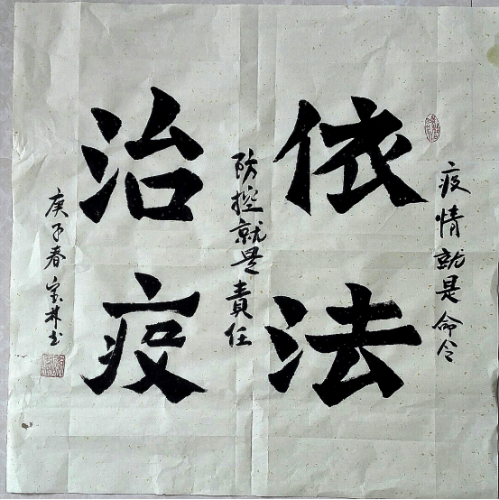 疫情就是命令
依法
防控就是責任
治疫
庚子春宝林书